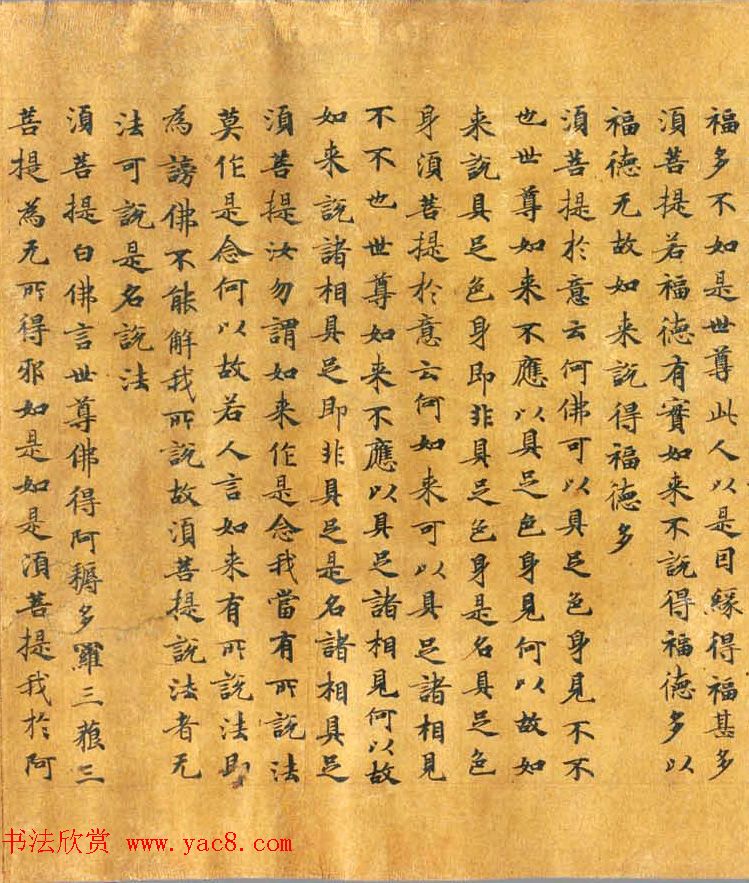 福多不如是世尊此人以是因緣得福甚多
須菩提若福德有實如来不說得福德多以
福德无故如来說得福德多
須菩提於意云何佛可以具足色身見不不
也世尊如来不應以具足色身見何以故如
来說具足色身即非具足色身是名具足色
身須菩提於意云何如来可以具足諸相見
不不也世尊如来不應以具足諸相見何以故
如来說諸相具足即非具足是名諸相具足
須菩提汝勿謂如来作是念我當有所說法
莫作是念何以故若人言如来有所說法即
為謗佛不能解我所說故須菩提說法者无
法可說是名說法
須菩提白佛言世尊佛得阿耨多羅三藐三
菩提為无所得邪如是如是須菩提我於阿
书法欣赏 www.yac8.com